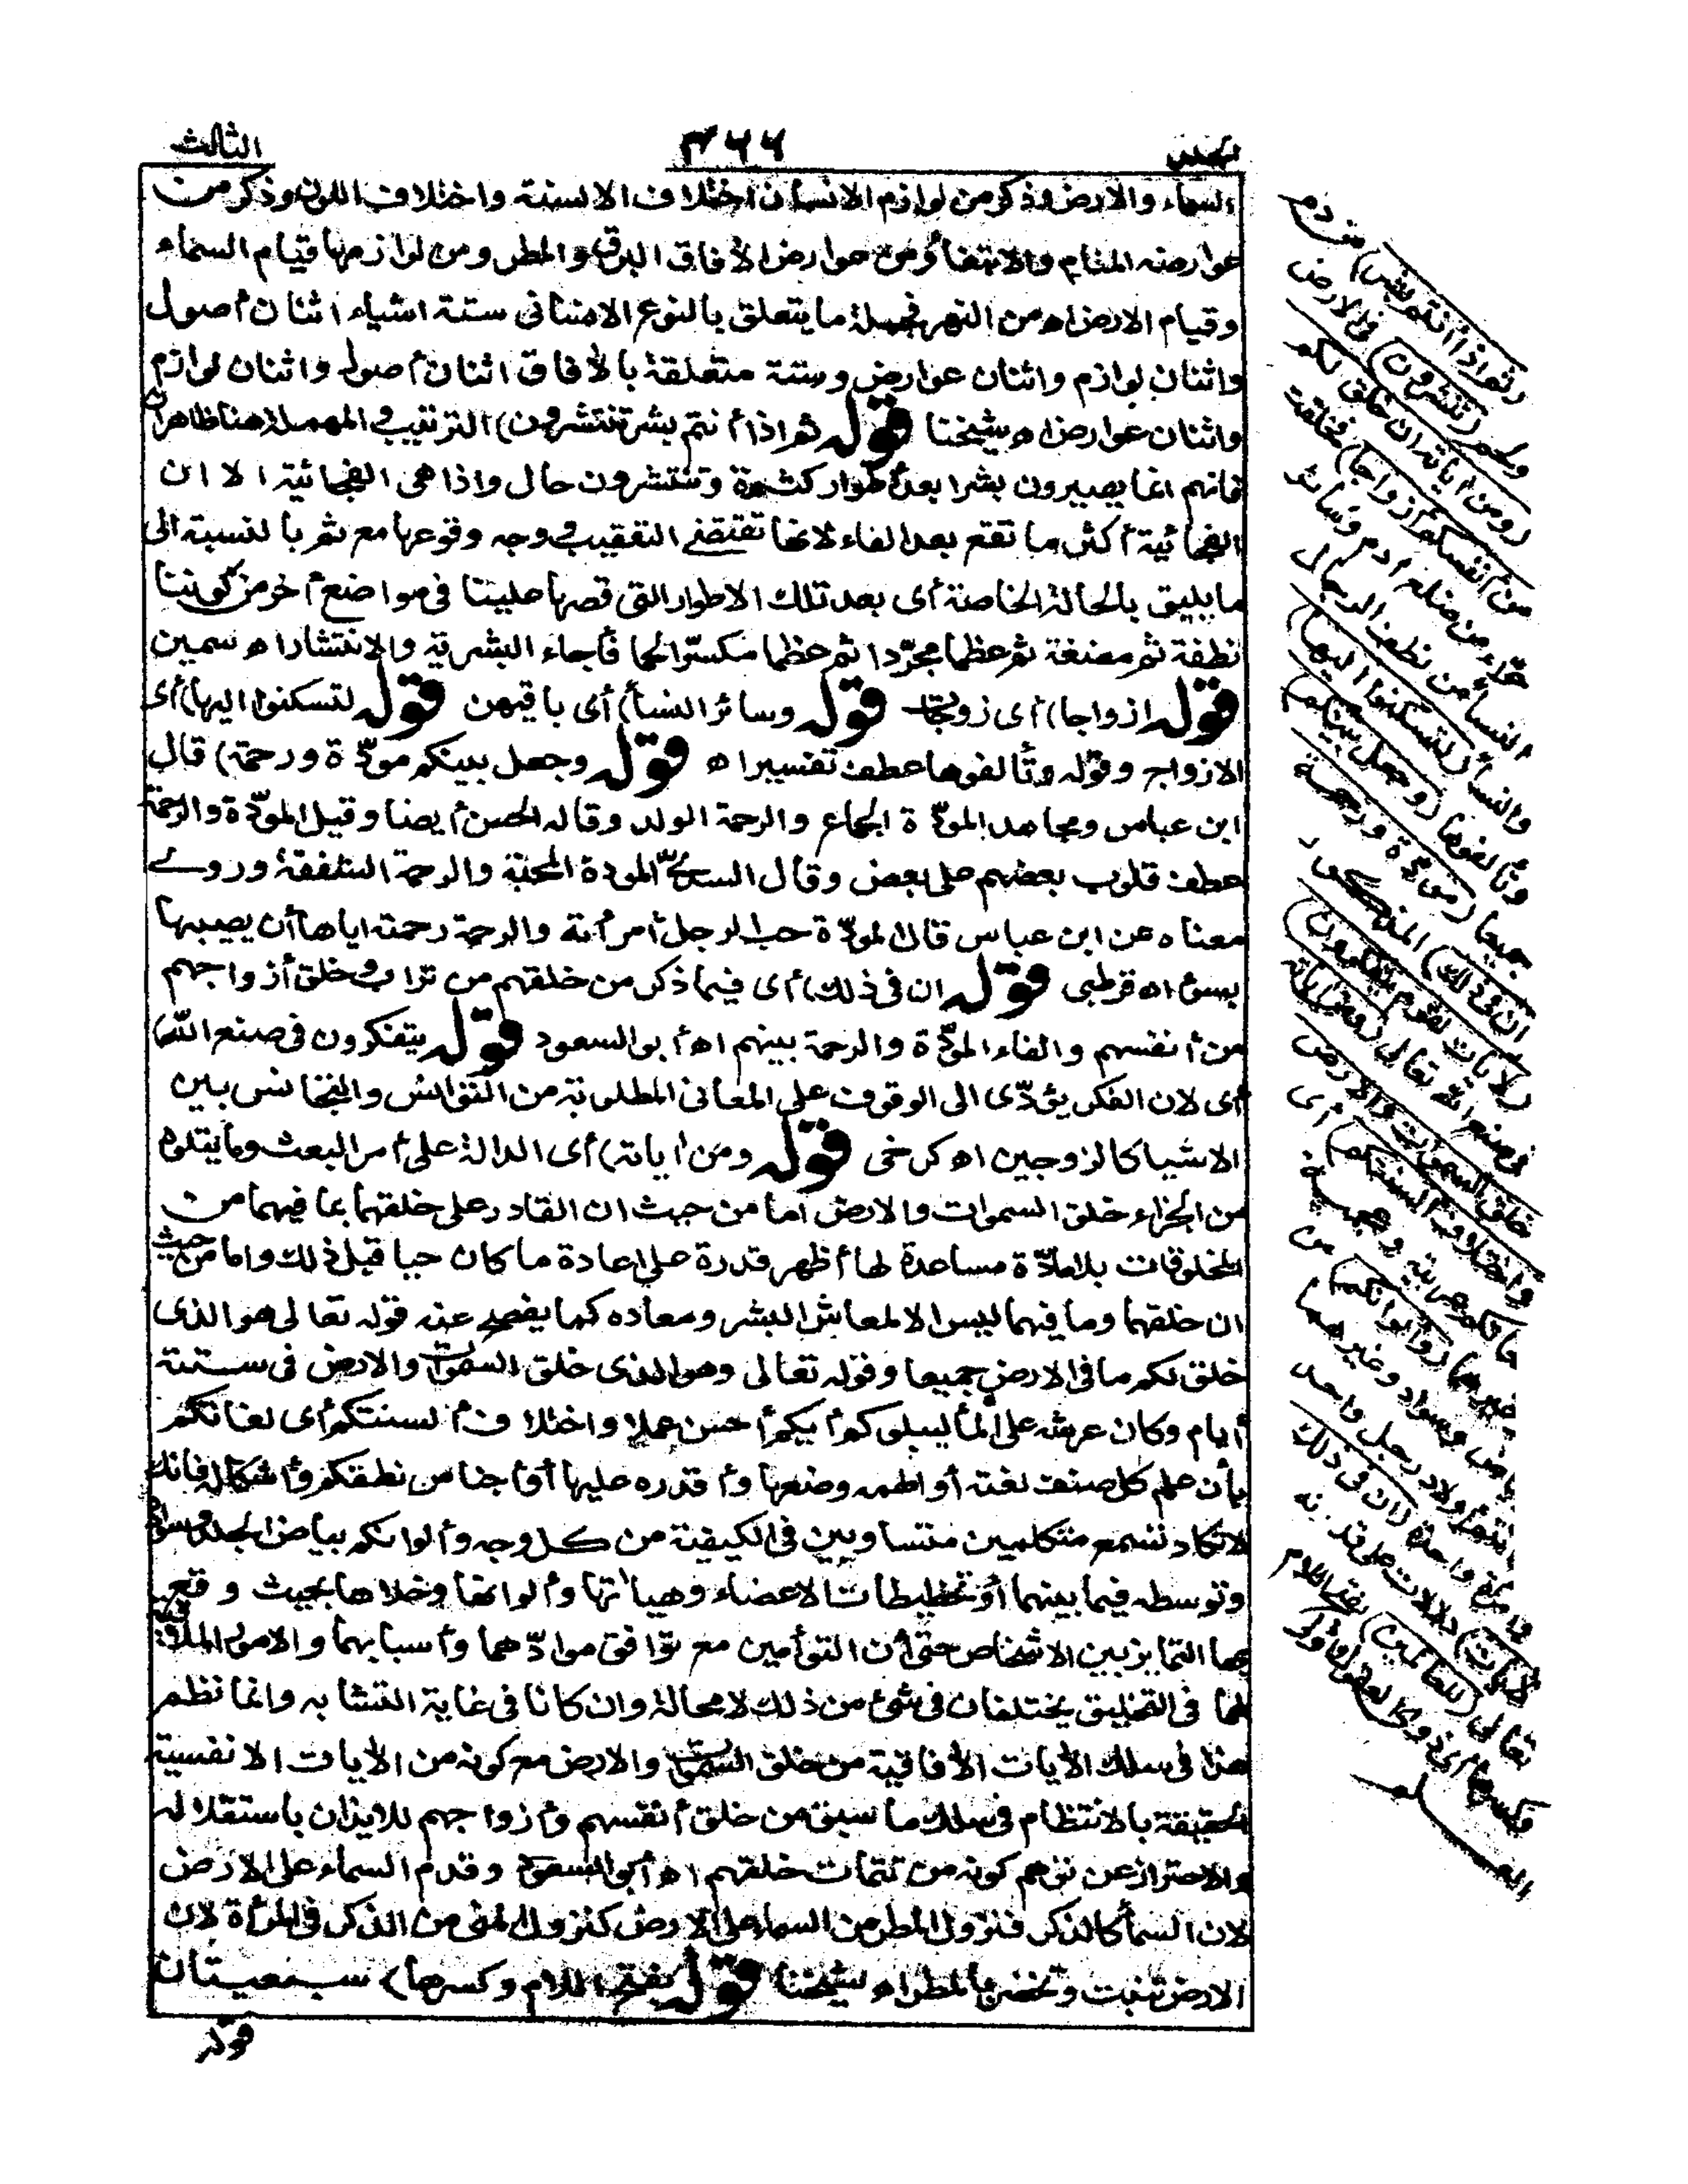 الثالث
٣٦٦
السماء والارض وذكر من لوازم الانسان اختلاف الالسنة واختلاف اللون وذكر من
عوارضه المنام والابتغاء ومن عوارض الآفاق البرق والمطر ومن لوازمها قيام السماء
وقيام الارض اه من النهر فجملة ما يتعلق بالنوع الانسانى ستة اشياء اثنان أصول
واثنان لوازم واثنان عوارض وستة متعلقة بالآفاق اثنان أصول واثنان لوازم
واثنان عوارض اه شيخنا قوله ثم اذا أنتم بشر تنتشرون) الترتيب والمهملة هنا ظاهران
فانهم انما يصيرون بشرا بعد أطوار كثيرة وتنتشرون حال واذا هى الفجائية الا ان
الفجائية أكثر ما تقع بعد الفاء لانها تقتضى التعقيب ووجه وقوعها مع ثم بالنسبة الى
ما يليق بالحالة الخاصة أى بعد تلك الاطوار التى قصها علينا فى مواضع أخر من كوننا
نطفة ثم مضغة ثم عظما مجرّدا ثم عظما مكسوّا لحما فأجاء البشرية والانتشار اه سمين
قوله ازواجا) أى زوجات قوله وسائر النسأ) أى باقيهن قوله لتسكنوا اليها) أى
الازواج وقوله وتألفوها عطف تفسير اه قوله وجعل بينكم مودّة ورحمة) قال
ابن عباس ومجاهد المودّة الجماع والرحمة الولد وقاله الحسن أيضا وقيل المودّة والرحمة
عطف قلوب بعضهم على بعض وقال السدّىّ المودة المحبة والرحمة الشفقة وروى
معناه عن ابن عباس قال المودّة حب الرجل أمرأته والرحمة رحمته اياها أن يصيبها
بسوء اه قرطبى قوله ان فى ذلك) أى فيما ذكر من خلقهم من تراب وخلق أزواجهم
من أنفسهم والقاء المودّة والرحمة بينهم اه أبو السعود قوله يتفكرون فى صنع الله)
أى لان الفكر يؤدّى الى الوقوف على المعانى المطلوبة من التوانس والتجانس بين
الاشيا كالزوجين اه كرخى قوله ومن أياته) أى الدالة على أمر البعث وما يتلوه
من الجزاء خلق السموات والارض اما من حيث ان القادر على خلقهما بما فيهما من
المخلوقات بلا مادّة مساعدة لها أظهر قدرة على اعادة ما كان حيا قبل ذلك واما من حيث
ان خلقهما وما فيهما ليس الا لمعاش البشر ومعاده كما يفصح عنه قوله تعالى هو الذى
خلق لكم ما فى الارض جميعا وقوله تعالى وهو الذى خلق السموات والارض فى ستة
أيام وكان عرشه على المأ ليبلوكم أيكم أحسن عملا واختلاف ألسنتكم أى لغاتكم
بأن علم كل صنف لغته أو الهمه وضعها وأقدره عليها أو أجناس نطقكم وأشكاله فانك
لا تكاد تسمع متكلمين متساويين فى الكيفية من كل وجه وألوانكم ببياض الجلد وسواده
وتوسطه فيما بينهما أو تخطيطات الاعضاء وهيأتها وألوانها وحلاها بحيث وقع
بها التمايز بين الاشخاص حتى أن التوأمين مع توافق موادّهما وأسبابهما والامور الملاقية
لهما فى التخليق يختلفان فى شئ من ذلك لا محالة وان كانا فى غاية التشابه وانما نظم
هذا فى سلك الأيات الآفاقية من خلق السموات والارض مع كونه من الأيات الانفسية
الحقيقة بالانتظام فى سلك ما سبق من خلق أنفسهم وأزواجهم للايذان باستقلاله
والاحتراز عن توهم كونه من تتمات خلقهم اه أبو السعود وقدم السماء على الارض
لان السمأ كالذكر فنزول المطر من السماء على الارض كنزول المنى من الذكر فى المرأة لان
الارض تنبت وتخضر بالمطر اه شيخنا قوله بفتح اللام وكسرها) سبعيتان
قوله
(ثم اذا أنتم بشر) من دم
ولحم (تنتشرون) فى الارض
(ومن أياته ان خلق لكم
من أنفسكم أزواجا) فخلقت
حوّاء من ضلع أدم وسائر
النسأ من نطف الرجال
والنسأ (لتسكنوا اليها)
وتألفوها (وجعل بينكم)
جميعا (مودّة ورحمة
ان فى ذلك) المذكور
(لأيات لقوم يتفكرون)
فى صنع الله تعالى (ومن أياته
خلق السموات والارض
واختلاف ألسنتكم) أى
لغاتكم من عربية وعجمية
وغيرهما (وألوانكم) من
بياض وسواد وغيرهما
وأنتم أولاد رجل واحد
وامرأة واحدة (ان فى ذلك
لأيات) دلالات على قدرته
تعالى (للعالمين) بفتح اللام
وكسرها أى ذوى العقول وأولى
العلم